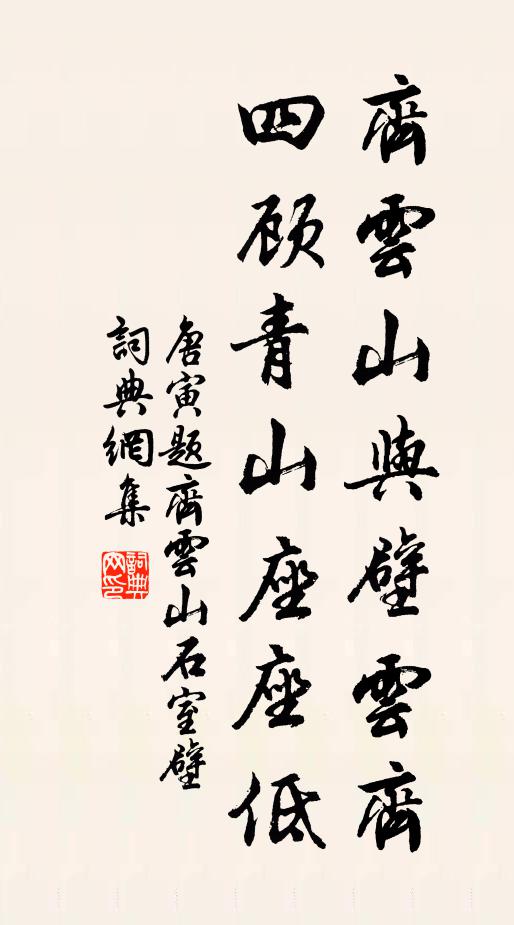 齊雲山與壁雲齊
四顾青山座座低
唐寅题齊雲山石室壁
詞典網集
詞典
网印